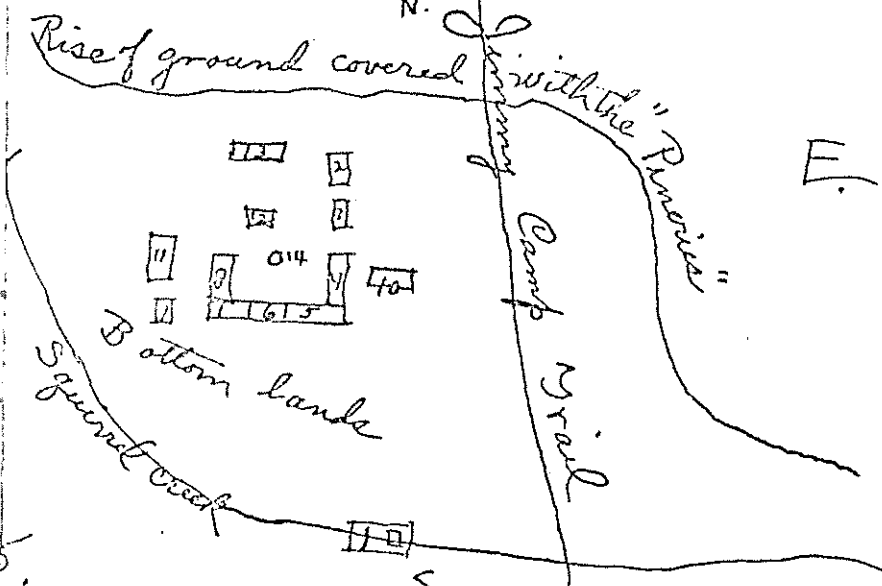 N.
Rise of ground covered with the "Pineries"
E.
Jimmy Camp Trail
13
2
12
3
11
014
4
40
8
6 5
Bottom lands
Squirrel Creek
S